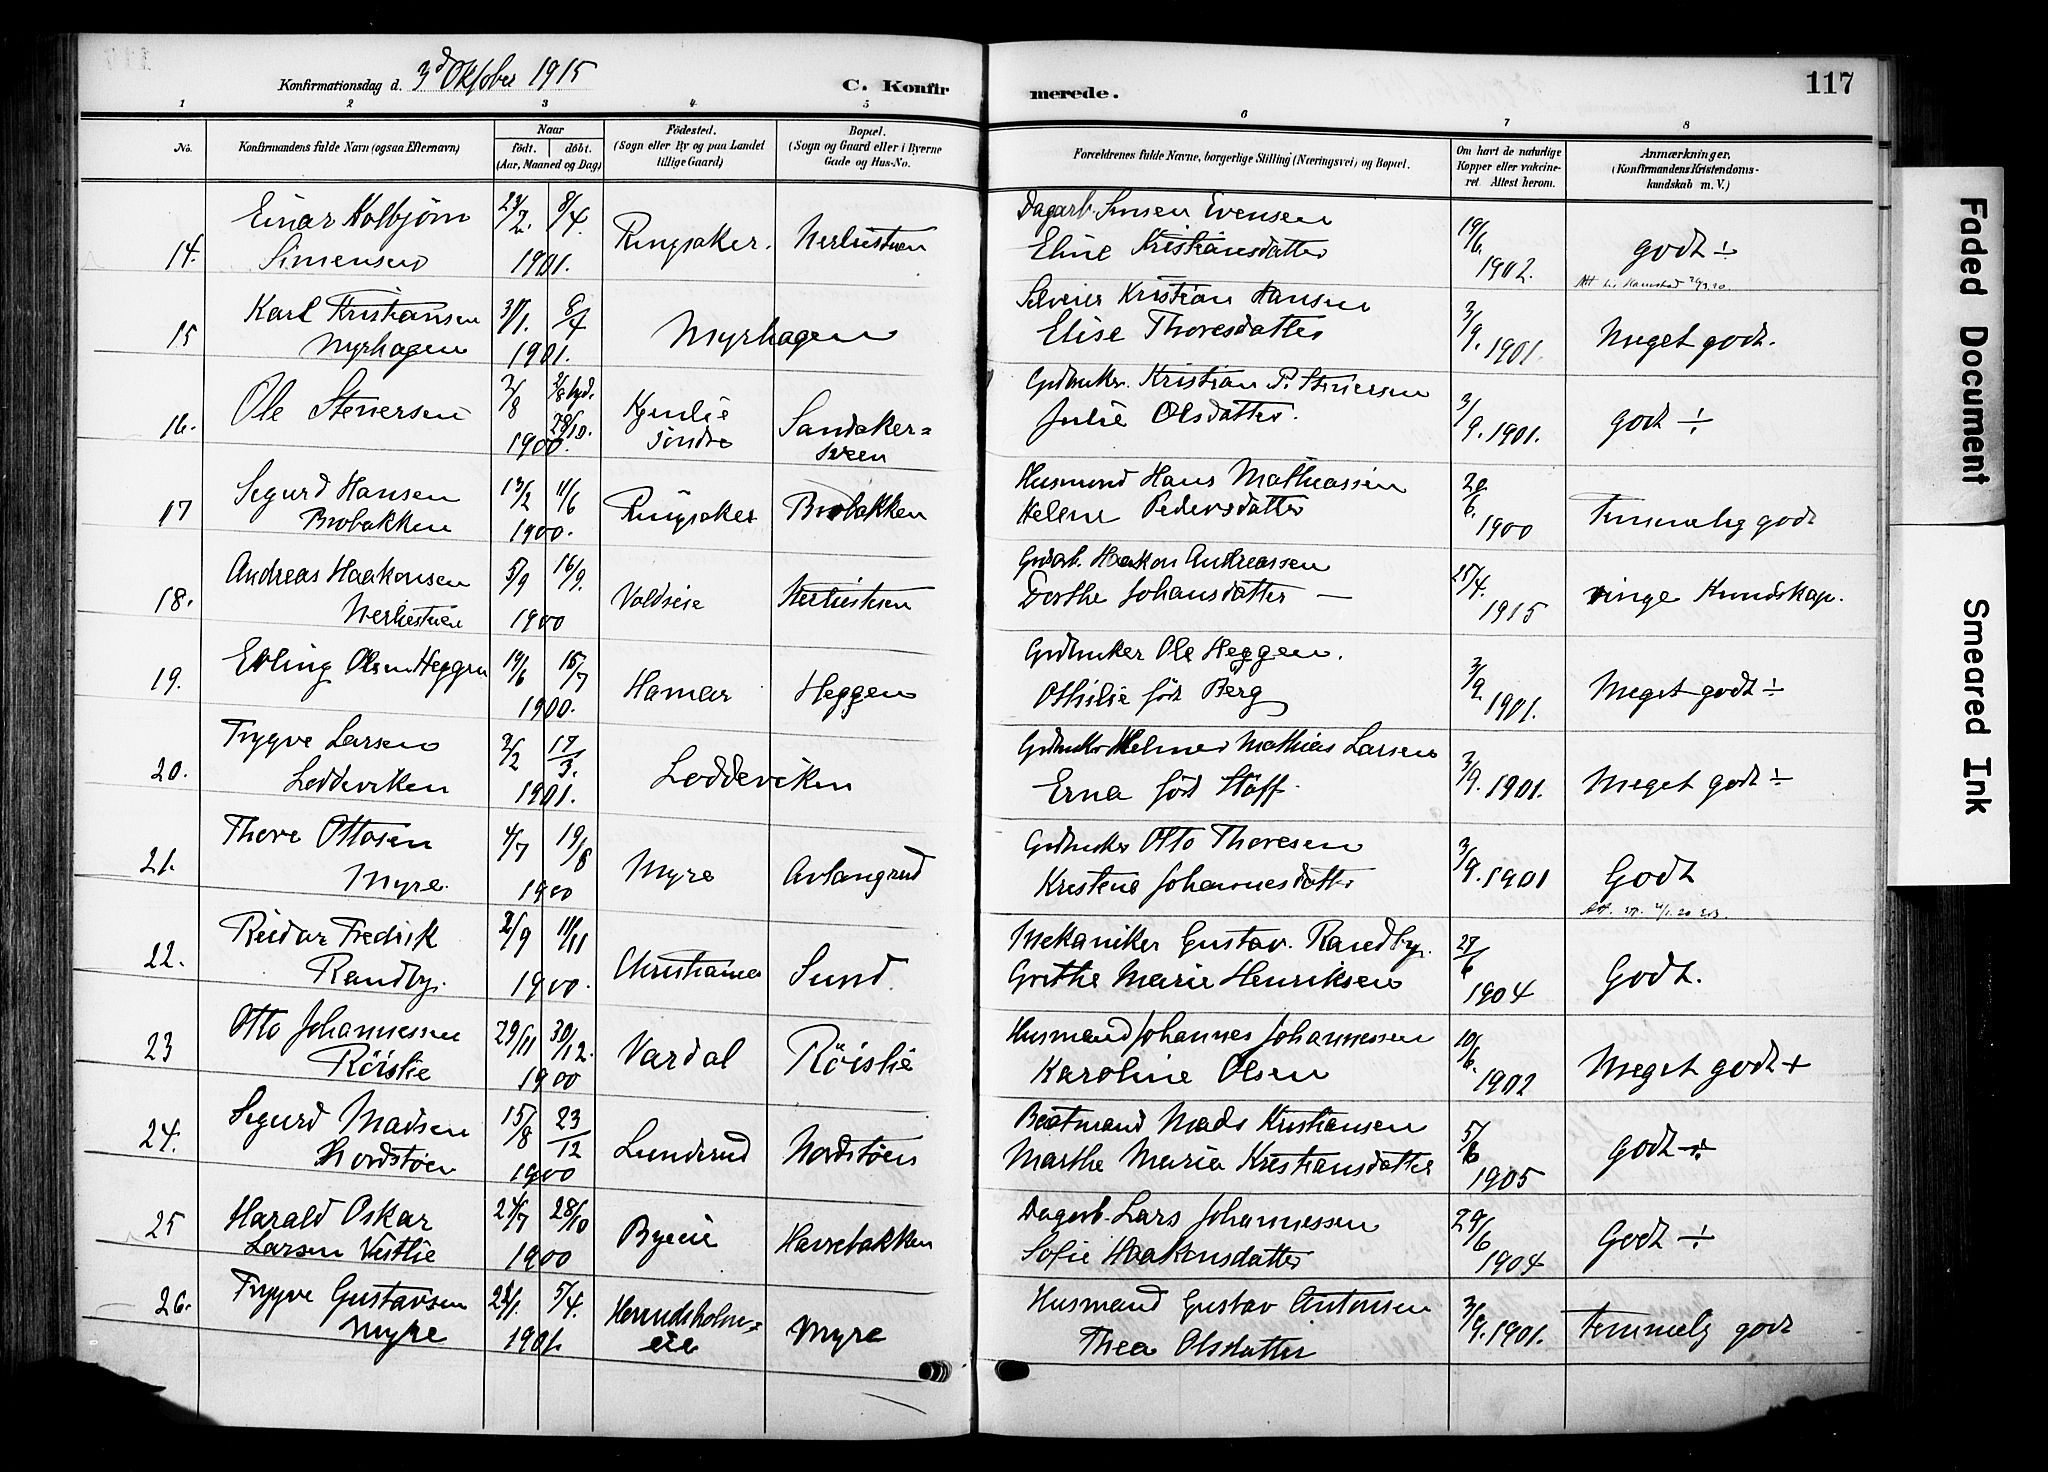 Konfirmationsdag d. 3d Oktober 1915
C. Konfirmerede.
117
1 2 3 4 5 6 7 8
No.
Konfirmandens fulde Navn (ogsaa Efternavn)
Naar
født. døbt.
(Aar, Maaned og Dag)
Fødested.
(Sogn eller By og paa Landet
tillige Gaard)
Bopæl.
(Sogn og Gaard eller i Byerne
Gade og Hus-No.
Forældrenes fulde Navne, borgerlige Stilling (Næringsvei) og Bopæl.
Om havt de naturlige
Kopper eller vakcine-
ret. Attest herom.
Anmærkninger.
(Konfirmandens Kristendoms-
kundskab m. V.)
14. Einar Kolbjørn
Simensen
23/2. 8/4.
1901.
Ringsaker.
Nerlistuen
Dagarb. Simen Evensen
Eline Kristiansdatter
19/6. 1902.
godt ÷
15 Karl Kristiansen
Myrhagen
31/1. 8/4
1901.
Myrhagen
Selveier Kristian Hansen
Elise Thoresdatter
3/9. 1901.
Meget godt.
16. Ole Stenersen
2/8 2/8 hjd. 28/10.
1900.
Kjenlie
søndre
Sandaker=
sveen
Gbruker. Kristian P. Stenersen
Julie Olsdatter.
3/9. 1901.
godt ÷
17 Sigurd Hansen
Brobakken
13/2 11/6
1900.
Ringsaker
Brobakken
Husmand Hans Mathiassen
Helene Pedersdatter
20/6. 1900
Temmelig godt
18. Andreas Haakonsen
Nerlistuen
5/9 16/9.
1900
Voldseie
Nerlistuen
Grdarb. Haakon Andreassen
Dorthe Johansdatter —
25/4. 1915
ringe Kundskap.
19. Erling Olsen Heggen
19/6 15/7
1900.
Hamar
Heggen
Grdbruker Ole Heggen.
Othilie født Berg
3/9. 1901.
Meget godt ÷
20. Trygve Larsen
Loddeviken
2/2 17/3.
1901.
Loddeviken
Grdbruker Helmer Mathias Larsen
Erna født Støff.
3/9. 1901.
Meget godt ÷
21. Thore Ottosen
Myre.
4/7 19/8
1900
Myre
Avlangrud
Grdbruker Otto Thoresen
Kristine Johannesdatter
3/9. 1901
Godt
22. Reidar Fredrik
Randby.
2/9 11/11
1900.
Christiania
Sund.
Mekaniker Gustav. Randby.
Grethe Marie Henriksen
27/6 1904
Godt.
23 Otto Johannessen
Röislie
29/11 30/12.
1900
Vardal
Röislie
Husmand Johannes Johannessen
Karoline Olsen
10/6. 1902
Meget godt +
24. Sigurd Madsen
Nordstøen
15/8 23/12
1900
Lunderud
Nordstøen
Baatmand Mads Kristiansen
Marthe Maria Kristiansdatter
5/8 1905
godt ÷
25 Harald Oskar
Larsen Vestlie
24/7 28/10
1900
Byeie
Havrebakken
Dagarb. Lars Johannessen
Sofie Haakensdatter
29/6 1904
Godt ÷
26. Trygve Gustavsen
Myre
22/1. 5/4.
1901.
Herudsholm=
eie
Myre
Husmand Gustav Antonsen
Thea Olsdatter
3/9. 1901.
Temmelig godt
Faded Document
Smeared Ink